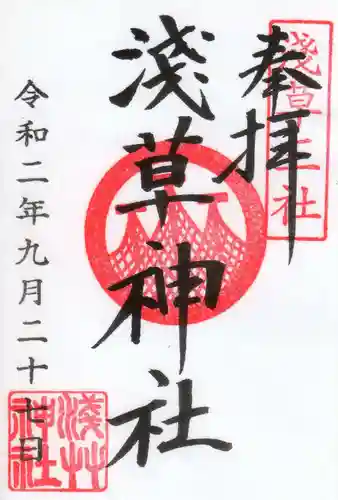 奉拝
淺草三社
淺草神社
令和二年九月二十七日
淺草神社